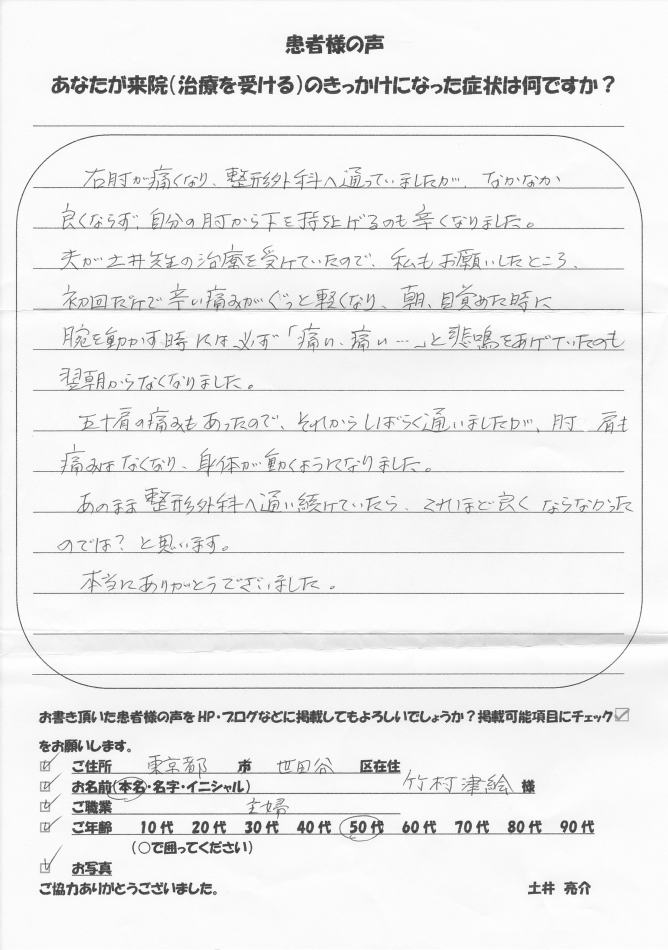 患者様の声
あなたが来院(治療を受ける)のきっかけになった症状は何ですか?
右肘が痛くなり、整形外科へ通っていましたが、なかなか
良くならず、自分の肘から下を持ち上げるのも辛くなりました。
夫が土井先生の治療を受けていたので、私もお願いしたところ、
初回だけで辛い痛みがぐっと軽くなり、朝、目覚めた時に
腕を動かす時には必ず「痛い、痛い…」と悲鳴をあげていたのも
翌朝からなくなりました。
五十肩の痛みもあったので、それからしばらく通いましたが、肘 肩も
痛みはなくなり、身体が動くようになりました。
あのまま整形外科へ通い続けていたら、これほど良くならなかった
のでは?と思います。
本当にありがとうございました。
お書き頂いた患者様の声をHP・ブログなどに掲載してもよろしいでしょうか?掲載可能項目にチェック☑
をお願いします。
☑ ご住所 東京都 市 世田谷 区在住
☑ お名前(本名・名字・イニシャル) 竹村津絵 様
☑ ご職業 主婦
☑ ご年齢 10代 20代 30代 40代 50代 60代 70代 80代 90代
(○で囲ってください)
☑ お写真
ご協力ありがとうございました。 土井 亮介